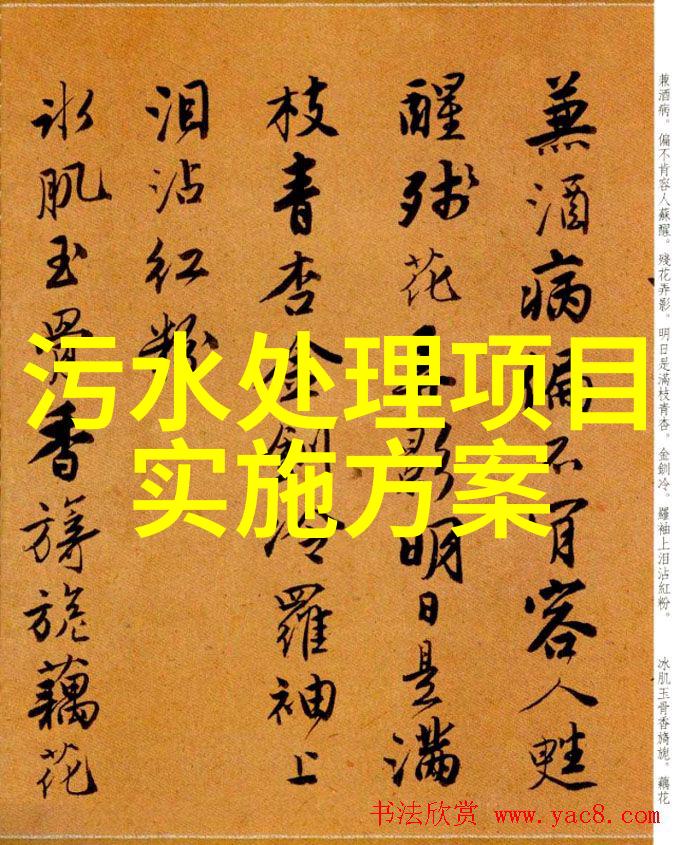 蕪酒病偏不肯容人甦
醒殘花弄影明日是滿
枝青杏金釧冷羅袖上
泪沾红粉
冰肌玉骨香旖旎藕花
兼酒病。偏不肯容人蘇醒。殘花弄影。明日是滿枝青杏。金釧冷。羅袖上泪沾紅粉。
冰肌玉骨香旖旎。藕花
污水处理项目
实施方案
书法欣赏 www.yac8.com